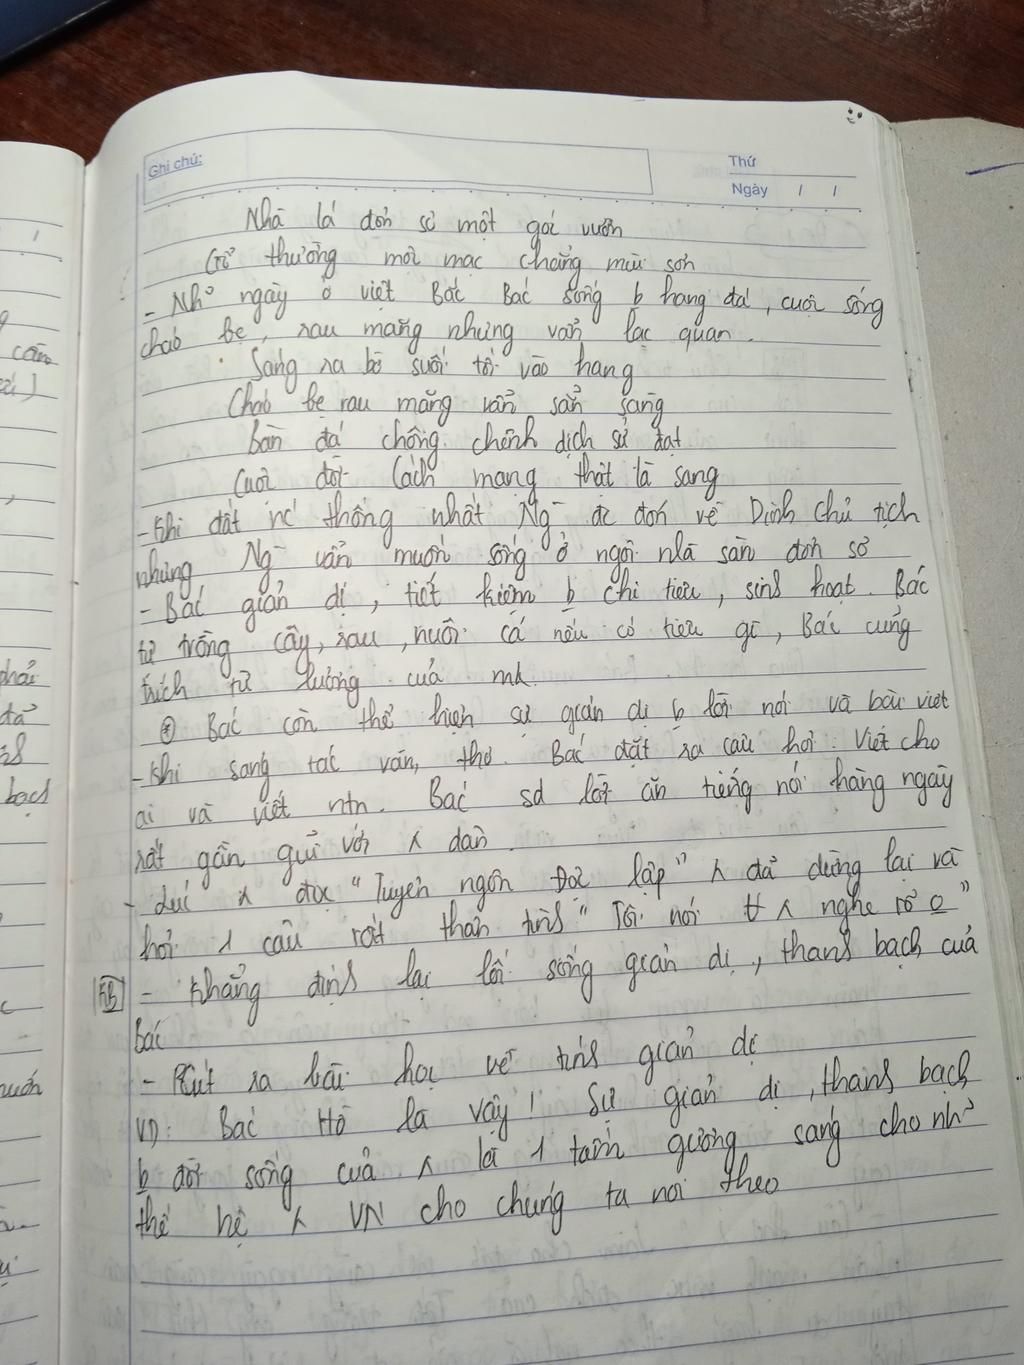 Ghi chú:
Thứ
Ngày / /
Nhà lá đơn sơ một góc vườn
Gỗ thường mộc mạc chẳng mùi sơn
- Nhớ ngày ở việt Bắc Bác sống b hang đá, cuộc sống
cháo bẹ, rau măng nhưng vẫn lạc quan.
Sáng ra bờ suối tối vào hang
Cháo bẹ rau măng vẫn sẵn sàng
bàn đá chông chênh dịch sử đạt
Cuộc đời Cách mạng thật là sang
- Khi đất nc thống nhất Ng~ đc đón về Dinh chủ tịch
nhưng Ng~ vẫn muốn sống ở ngôi nhà sàn đơn sơ
- Bác giản dị, tiết kiệm b chi tiêu, sinh hoạt. Bác
tự trồng cây, rau, nuôi cá nếu có tiêu gì, Bác cũng
trích từ lương của mk.
* Bác còn thể hiện sự giản dị b lời nói và bài viết
- Khi sáng tác văn, thơ. Bác đặt ra câu hỏi: Viết cho
ai và viết ntn. Bác sd lời ăn tiếng nói hằng ngày
rất gần gũi với ʌ dân.
- Lúc ʌ đọc "Tuyên ngôn Độc lập" ʌ đã dừng lại và
hỏi 1 câu rất thân tình "Tôi nói ʌ nghe rõ o"
KB - Khẳng định lại lối sống giản dị, thanh bạch của
Bác
- Rút ra bài học về tính giản dị
VD: Bác Hồ là vậy! Sự giản dị, thanh bạch
b đời sống của ʌ là 1 tấm gương sáng cho nh~
thế hệ ʌ VN cho chúng ta noi theo